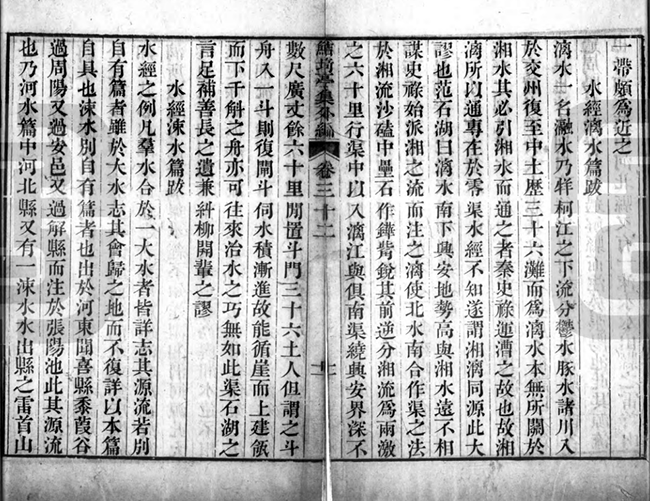 一帶頗爲近之
水經漓水篇跋
漓水一名灕水乃牂柯江之下流分鬱水豚水諸川入
於交州復至中土歷三十六灘而爲漓水本無所關於
湘水其必引湘水而通之者秦史祿運漕之故也故湘
漓所以通專在於零渠水經不知遂謂湘漓同源此大
謬也范石湖曰漓水南下興安地勢高與湘水遠不相
謀史祿始派湘之流而注之漓使北水南合作渠之法
於湘流沙磕中壘石作鏵觜銳其前逆分湘流爲兩激
之六十里行渠中以入漓江與俱南渠繞興安界深不
鮚埼亭集外編 卷三十二
數尺廣丈餘六十里閒置斗門三十六土人但謂之斗
舟入一斗則復閘斗伺水積漸進故能循崖而上建瓴
而下千斛之舟亦可往來治水之巧無如此渠石湖之
言足補善長之遺兼糾柳開輩之謬
水經涑水篇跋
水經之例凡羣水合於一大水者皆詳志其源流若別
自有篇者雖於大水志其會歸之地而不復詳以本篇
自具也涑水別自有篇者也出於河東聞喜縣黍葭谷
過周陽又過安邑又過解縣而注於張陽池此其源流
也乃河水篇中河北縣又有一涑水水出縣之雷首山